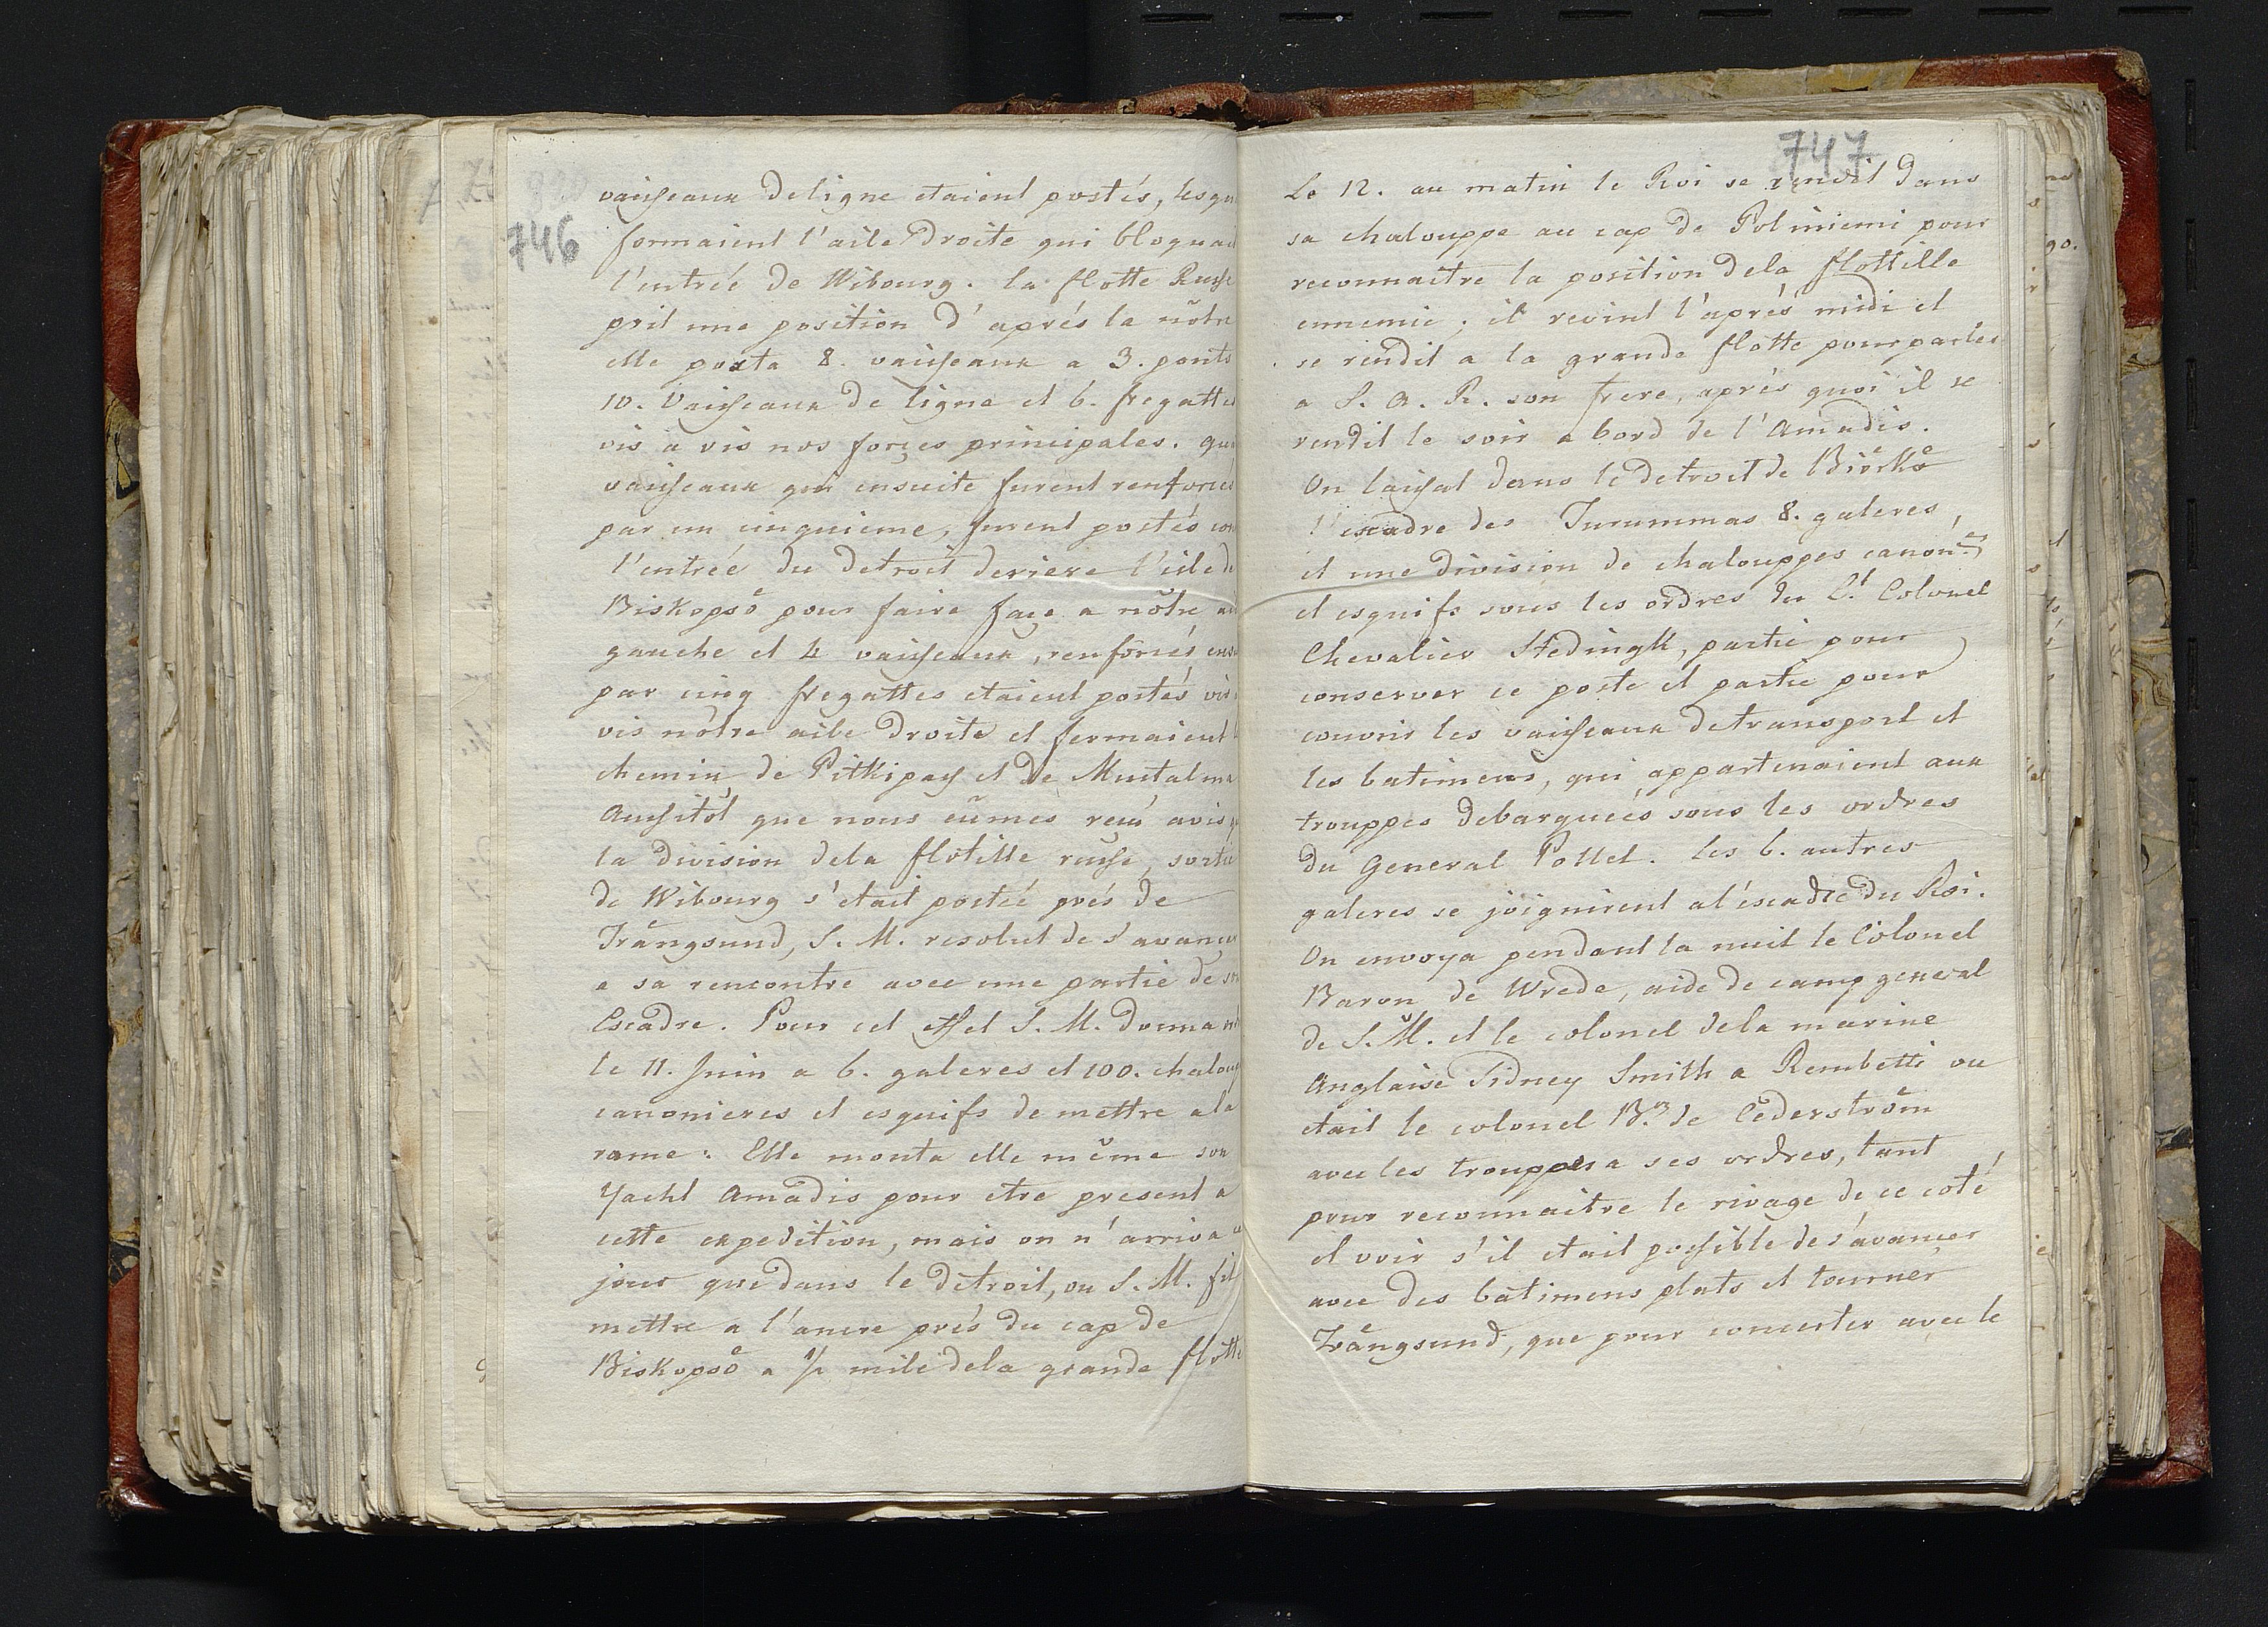 746
vaisseaux de ligne etaient postés, lesqu
formaient l'aile droite qui bloquai
l'entrée de Wibourg. la flotte Russe
prit une position d'aprés la nôtre
elle posta 8. vaisseaux a 3. ponts
10. Vaisseaux de ligne et 6. fregattes
vis a vis nos forces principales. qua
vaisseaux qui ensuite furent renforcés
par un cinquieme, furent postés con
l'entrée du detroit deriere l'isle de
Biskopsö pour faire face a nôtre ai
gauche et 4 vaisseaux, renforcés ensu
par cinq fregattes etaient postés vis
vis nôtre aile droite et fermaient l
chemin de Pitkipass et de Mustalma
Aussitôt que nous eûmes recû avis q
la division dela flotille russe, sortie
de Wibourg s'etait postée prés de
Trångsund, S. M. resolut de s'avancer
a sa rencontre avec une partie de son
Escadre. Pour cet effet S. M. donna or
le 11. Juin a 6. galeres et 100. chaloup
canonieres et esquifs de mettre a la
rame: Elle monta elle même son
Yacht Amadis pour etre present a
cette expedition, mais on n'arriva ce
jour que dans le detroit, ou S. M. fit
mettre a l'ancre prés du cap de
Biskopsö a ½ mile dela grande flotte
747
Le 12. au matin le Roi se rendit dans
sa chalouppe au cap de Polminiemi pour
reconnaitre la position dela flottille
ennemie; il revint l'aprés midi et
se rendit a la grande flotte pour parler
a S. A. R. son frere, aprés quoi il se
rendit le soir a bord de l'Amadis.
On laissat dans le detroit de Biörkö
l'escadre des Turummas 8. galeres,
et une division de chalouppes canon.es
et esquifs sous les ordres du Lt. Colonel
Chevalier Stedingk, partie pour
conserver ce poste et partie pour
couvrir les vaisseaux de transport et
les batimens, qui appartenaient aux
trouppes debarquées sous les ordres
du General Pollet. les 6. autres
galeres se joignirent a l'escadre du Roi.
On envoya pendant la nuit le Colonel
Baron de Wrede, aide de camp general
de S. M. et le colonel dela marine
Anglaise Sidney Smith a Rembetti ou
etait le colonel B.on de Cederström
avec les trouppes a ses ordres, tant
pour reconnaitre le rivage de ce coté
et voir s'il etait possible de s'avancer
avec des bâtimens plats et tourner
Trångsund, que pour concerter avec le